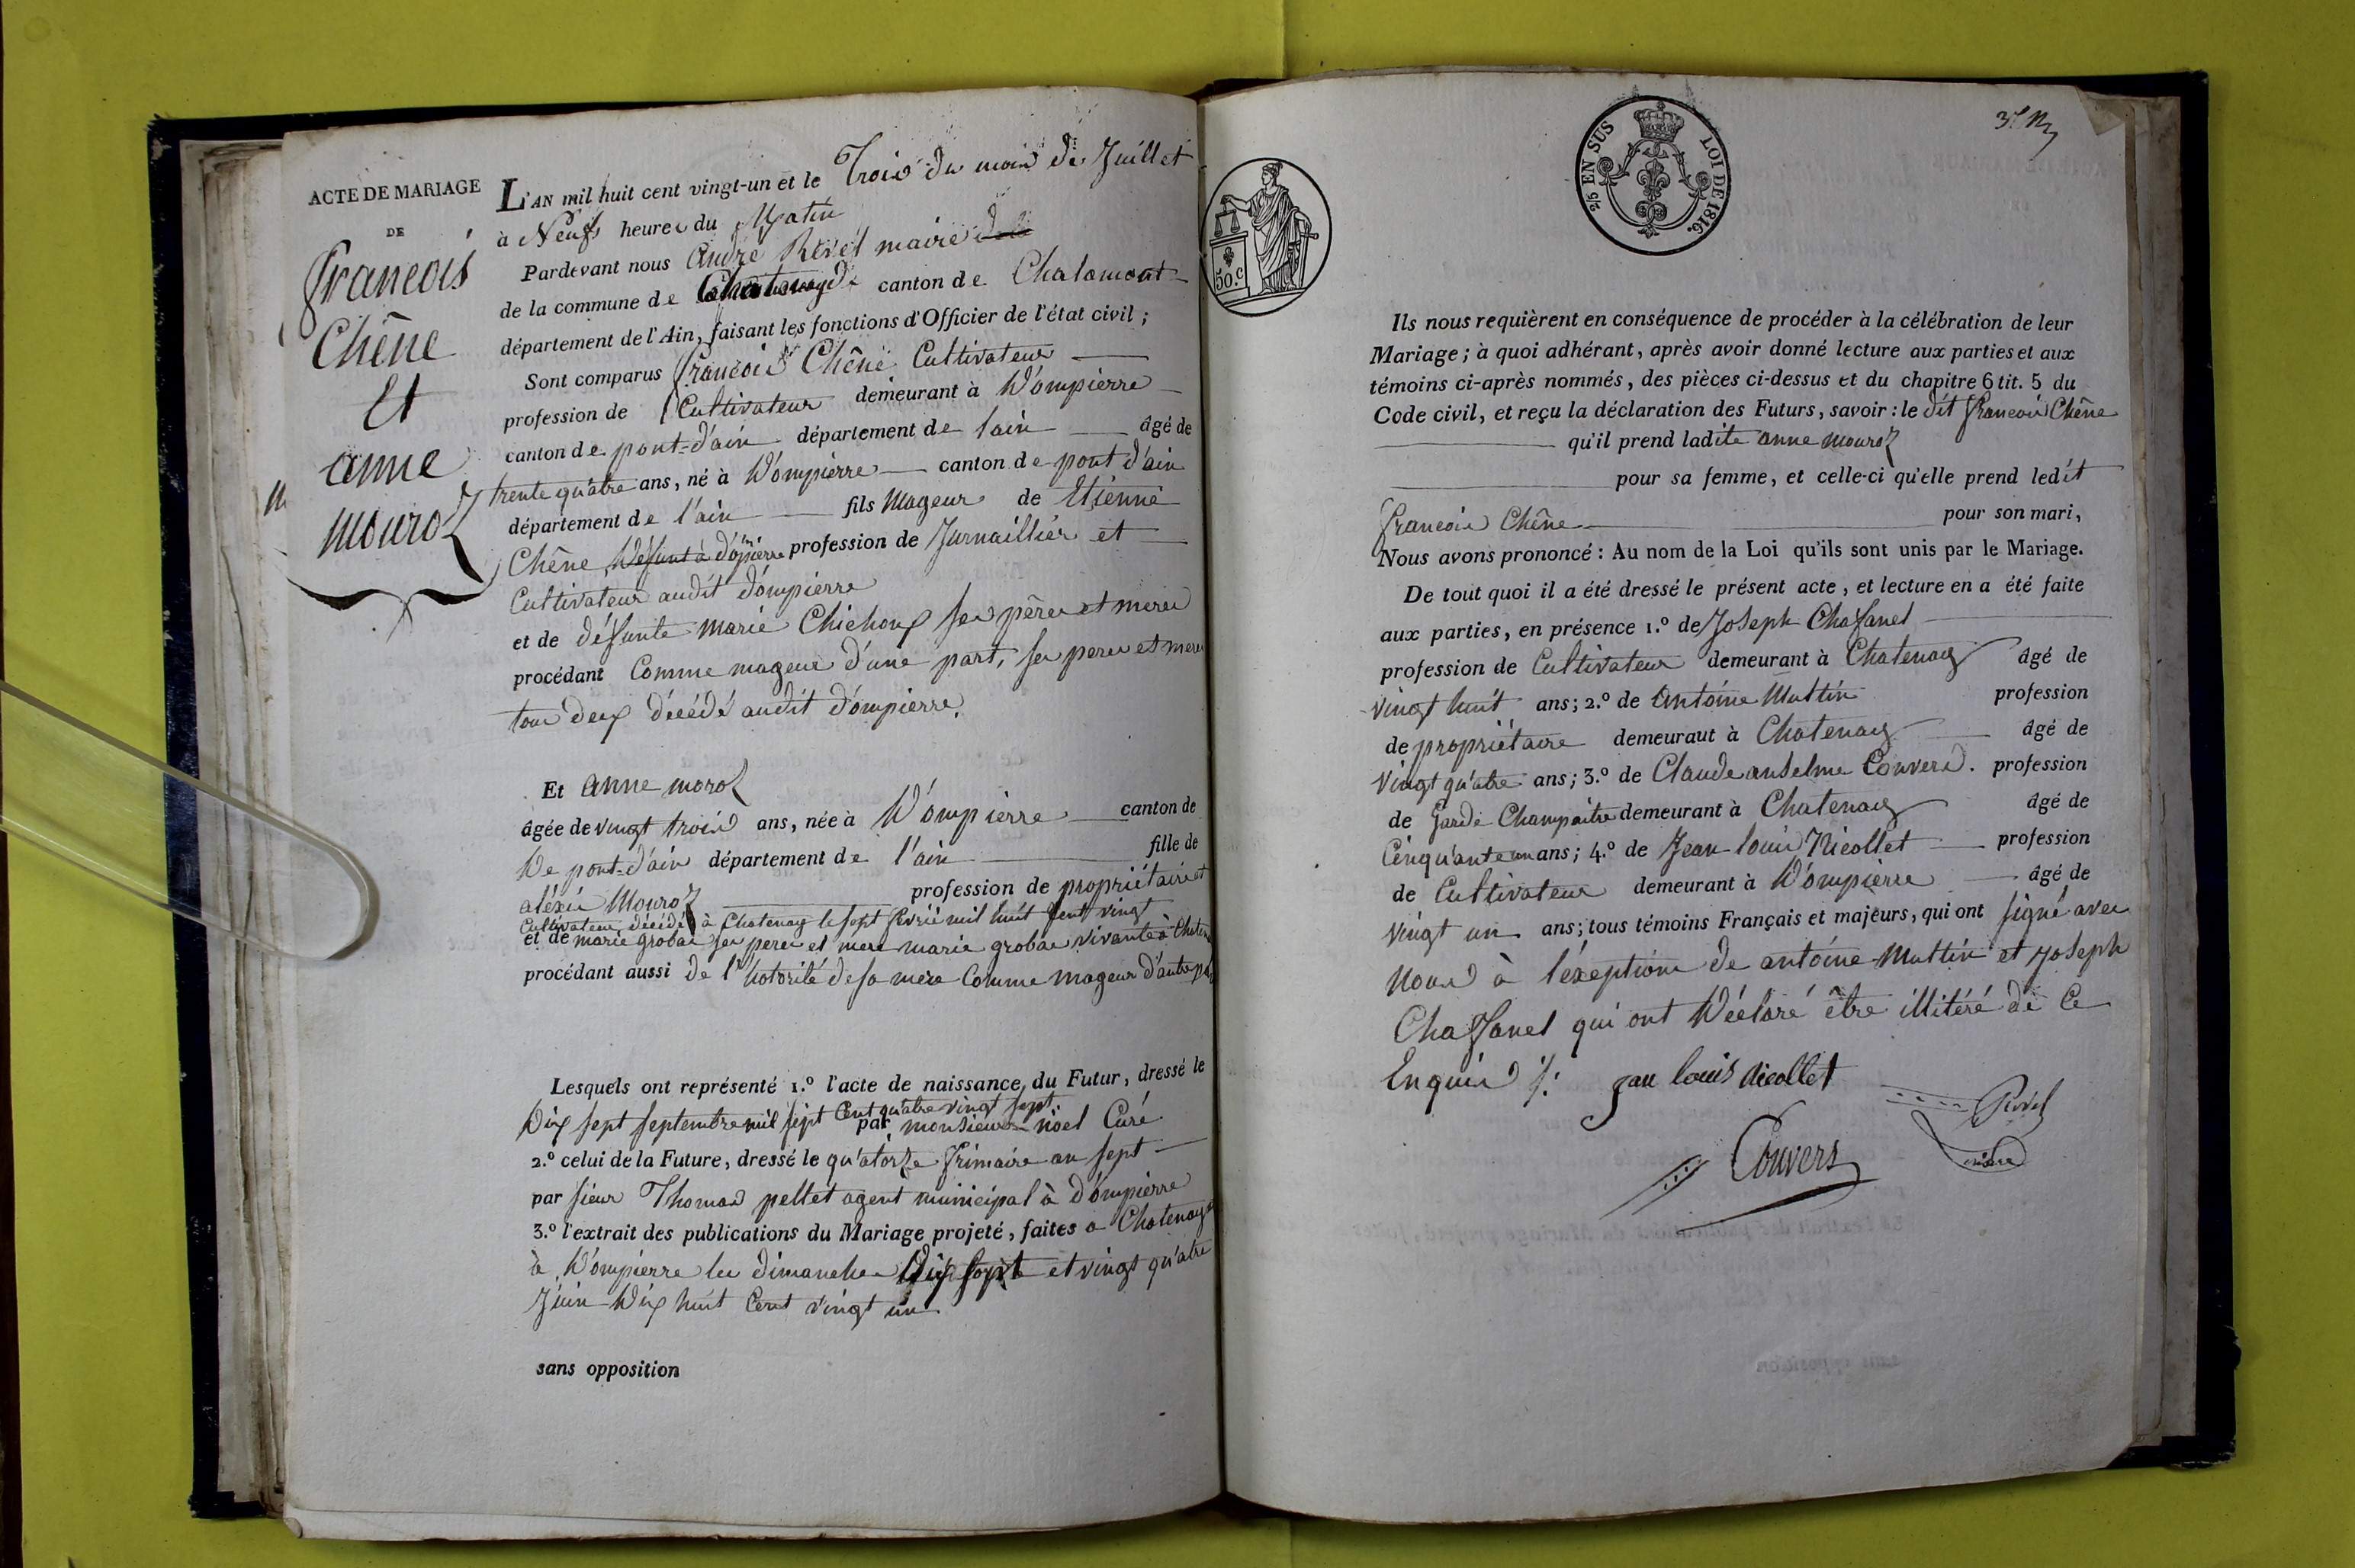 ACTE DE MARIAGE
DE
francois
Chêne
Et
anne
mouroz
L'AN mil huit cent vingt-un et le Trois du mois de Juillet
à Neufs heures du Matin
Pardevant nous André Revel maire
de la commune de Chatenay de canton de Chalamont
département de l'Ain, faisant les fonctions d'Officier de l'état civil ;
Sont comparus francois Chêne Cultivateur
profession de Cultivateur demeurant à Dompierre
canton de pont-d'ain département de l'ain âgé de
trente qu'atre ans, né à Dompierre canton de pont d'ain
département de l'ain fils Mageur de Etienne
Chêne Défunt à dompierre profession de Jurnaillier et
Cultivateur audit dompierre
et de défunte marie Chichoux ses pères et meres
procédant Comme mageur d'une part, ses peres et meres
tous deux décédé audit dompierre.
Et anne moroz
âgée de vingt trois ans, née à Dompierre canton de
De pont-d'ain département de l'ain fille de
aléxis Mouroz profession de propriétaire et
Cultivateur décédé à Chatenay le sept fevrié mil huit Cent vingt
et de marie grobas ses peres et mere marie grobas vivante à
procédant aussi de l'hotorité de sa mere Comme mageur d'autre
Lesquels ont représenté 1.º l'acte de naissance du Futur, dressé le
Dix sept septembre mil sept Cent qu'atre vingt sept
par monsieur nöel Curé
2.º celui de la Future, dressé le qu'atorze frimaire an sept
par sieur Thomas pellet agent municipal à dompierre
3.º l'extrait des publications du Mariage projeté, faites a Chatenay
à Dompierre les dimanches Dix sept et vingt qu'atre
Juin Dix huit Cent vingt un
sans opposition
50.c
2/5 EN SUS LOI DE 1816.
Ils nous requièrent en conséquence de procéder à la célébration de leur
Mariage ; à quoi adhérant, après avoir donné lecture aux parties et aux
témoins ci-après nommés, des pièces ci-dessus et du chapitre 6 tit. 5 du
Code civil, et reçu la déclaration des Futurs, savoir : le dit francois Chêne
qu'il prend ladite anne mouroz
pour sa femme, et celle-ci qu'elle prend ledit
francois Chêne pour son mari,
Nous avons prononcé : Au nom de la Loi qu'ils sont unis par le Mariage.
De tout quoi il a été dressé le présent acte, et lecture en a été faite
aux parties, en présence 1.º de Joseph Chafanel
profession de Cultivateur demeurant à Chatenay âgé de
vingt huit ans ; 2.º de antoine Muttin profession
de propriétaire demeuraut à Chatenay âgé de
vingt qu'atre ans ; 3.º de Claude anselme Convers. profession
de garde Champaitre demeurant à Chatenay âgé de
Cinqu'ante un ans ; 4.º de Jean-louis Nicollet profession
de Cultivateur demeurant à Dompierre âgé de
vingt un ans ; tous témoins Français et majeurs, qui ont signé avec
Nous à l'exeption de antoine Muttin et Joseph
Chaffanel qui ont Déclaré être illitéré de Ce
Enquis
jan louis nicollet
Revel
maire
Convers